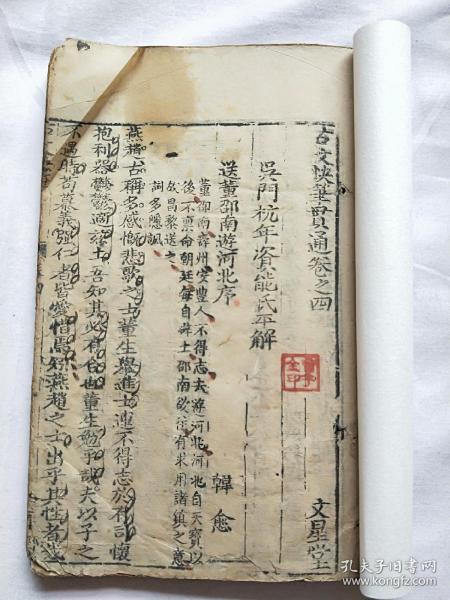 古文快筆貫通卷之四
文星堂
吳門杭年資能氏平解
送董邵南遊河北序
韓愈
董邵南壽州安豊人不得志去遊河北河北自天寶以
後不稟命朝廷每自辟士邵南欲往有求用諸鎮之意
故昌黎送之
詞多隱諷
燕趙古稱多感慨悲歌之士董生舉進士連不得志於有司懷
抱利器鬱鬱適茲土吾知其必有合也董生勉乎哉夫以子之
不遇時苟慕義彊仁者皆愛惜焉矧燕趙之士出乎其性者哉
孔夫子旧书网